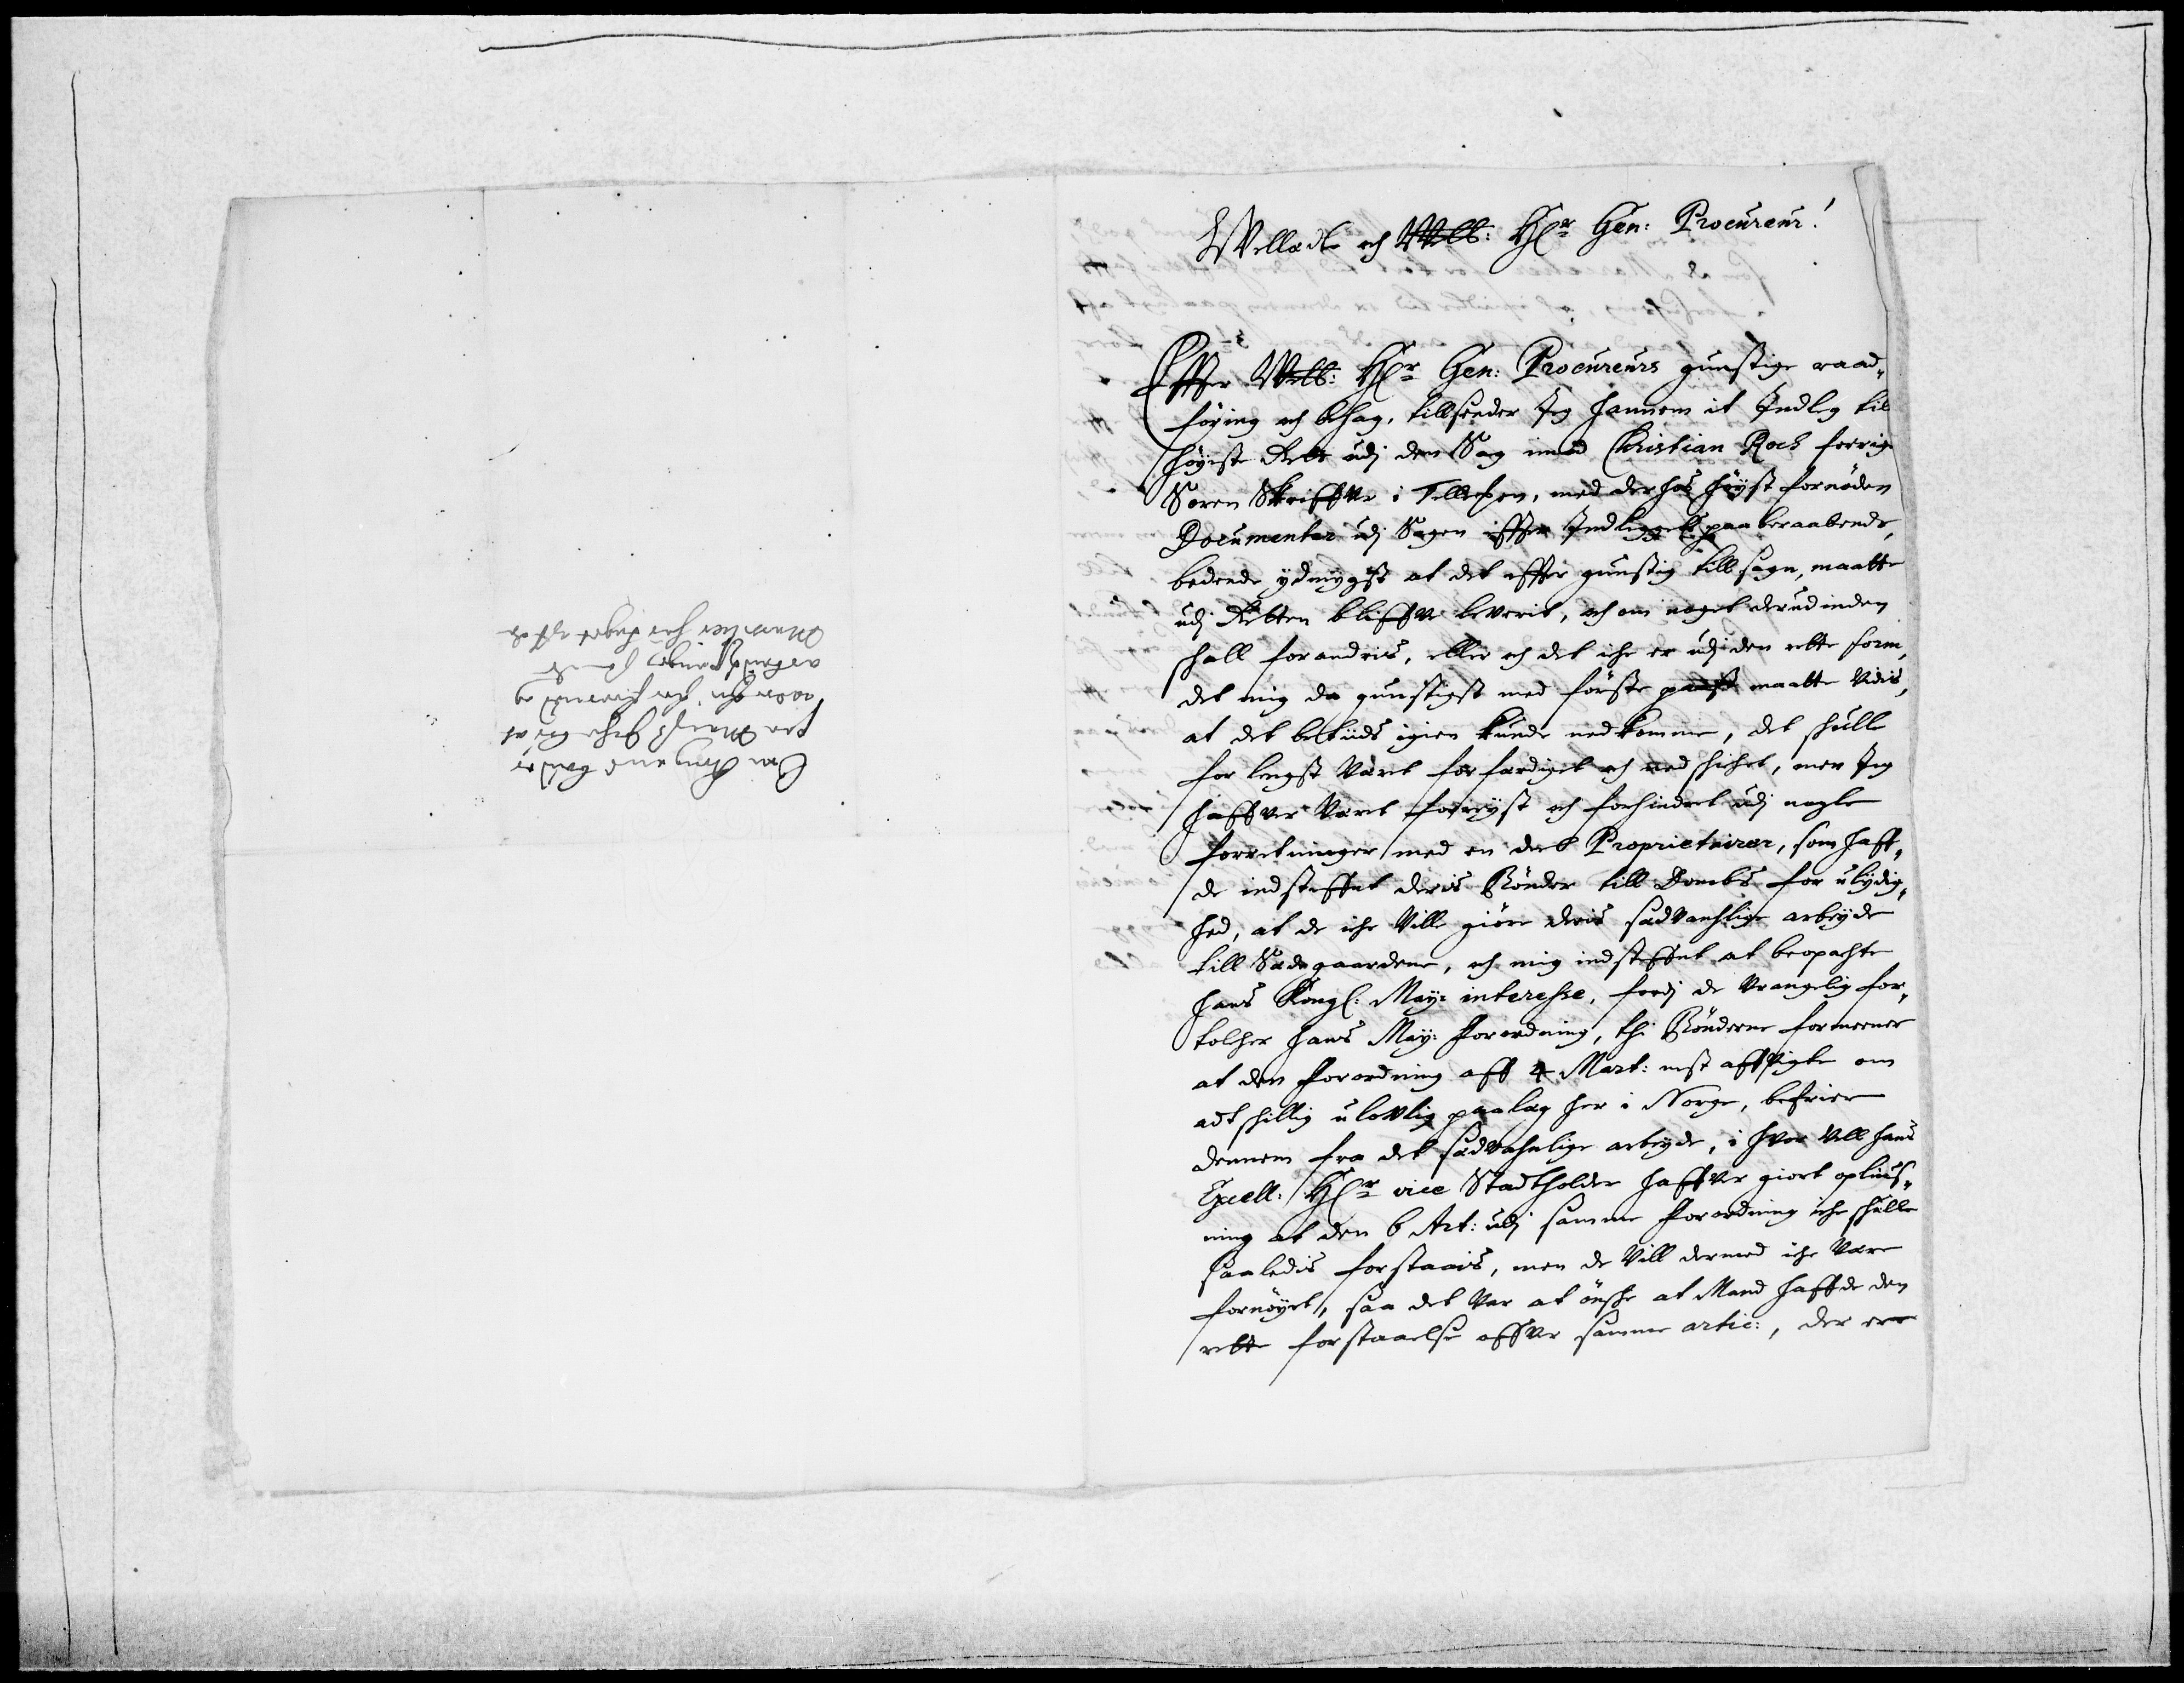 Welædle och Welb: H.r Gen: Procureur!
Effter Welb: H.r Gen: Procureurs gunstige raad-
föring och behag, tillsender Jeg hannem it Indleg til
höyeste Rett udj den Sag imod Christian Rock forrige
Soren Skriffver i Tellemen, med derhos höyst fornöden
Documenter udj Sagen effter Indleggets paaberaabende,
bedende ydmygst at det effter gunstig tillsagn, maatte
udj Retten bliffve leverit, och om noget derudinden
skall forandris, eller och det iche er udj den rette form,
det mig da gunstigst med förste maatte vidis,
at det betiids igien kunde nedkomme, det skulle
for lengst veret forfærdiget och nedskichet, men Jeg
haffver veret forreyst och forhindret udj nogle
forretninger med en deel Proprietairer, som haff-
de indsteffnt deris Bönder till Dombs for ulydig-
hed, at de iche ville giöre deris sædvanlige arbeyde
till Sædegaardene, och mig indsteffnt at beopachte
hans Kongl: May: interesse, fordj de vrangelig for-
tolcher hans May: forordning, thi Bönderne formeener
at den forordning aff 4 Mart: nest affvigte om
adtskillig ulovlig paalæg her i Norge, befrier
dennem fra det sædvahnlige arbeyde, i hvor vell hans
Excell: H.r vice Stadtholder haffver giort oplius-
ning at den 6 Art: udj samme forordning iche skulle
saaledis forstaais, men de vill dermed iche være
fornöyet, saa det var at önske at Mand haffde den
rette forstaaelse offver samme artic:, der ere